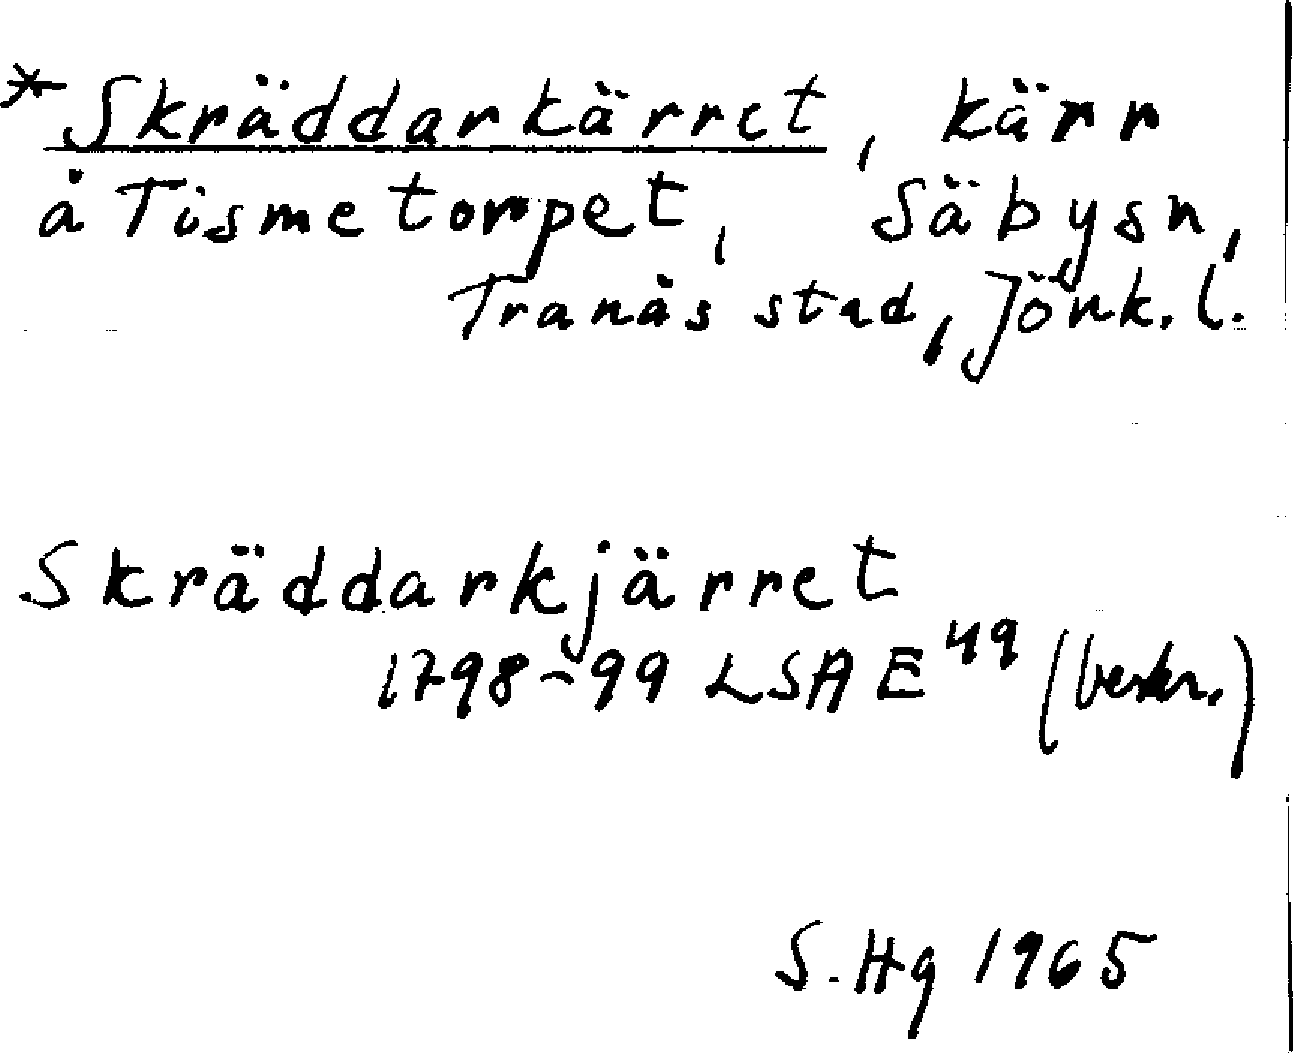 *Skräddarkärret, kärr
å Tismetorpet, Säbysn,
Tranås stad, Jönk. l.
Skräddarkjärret
1798-99 LSA E49 (beskr.)
S. Hg 1965